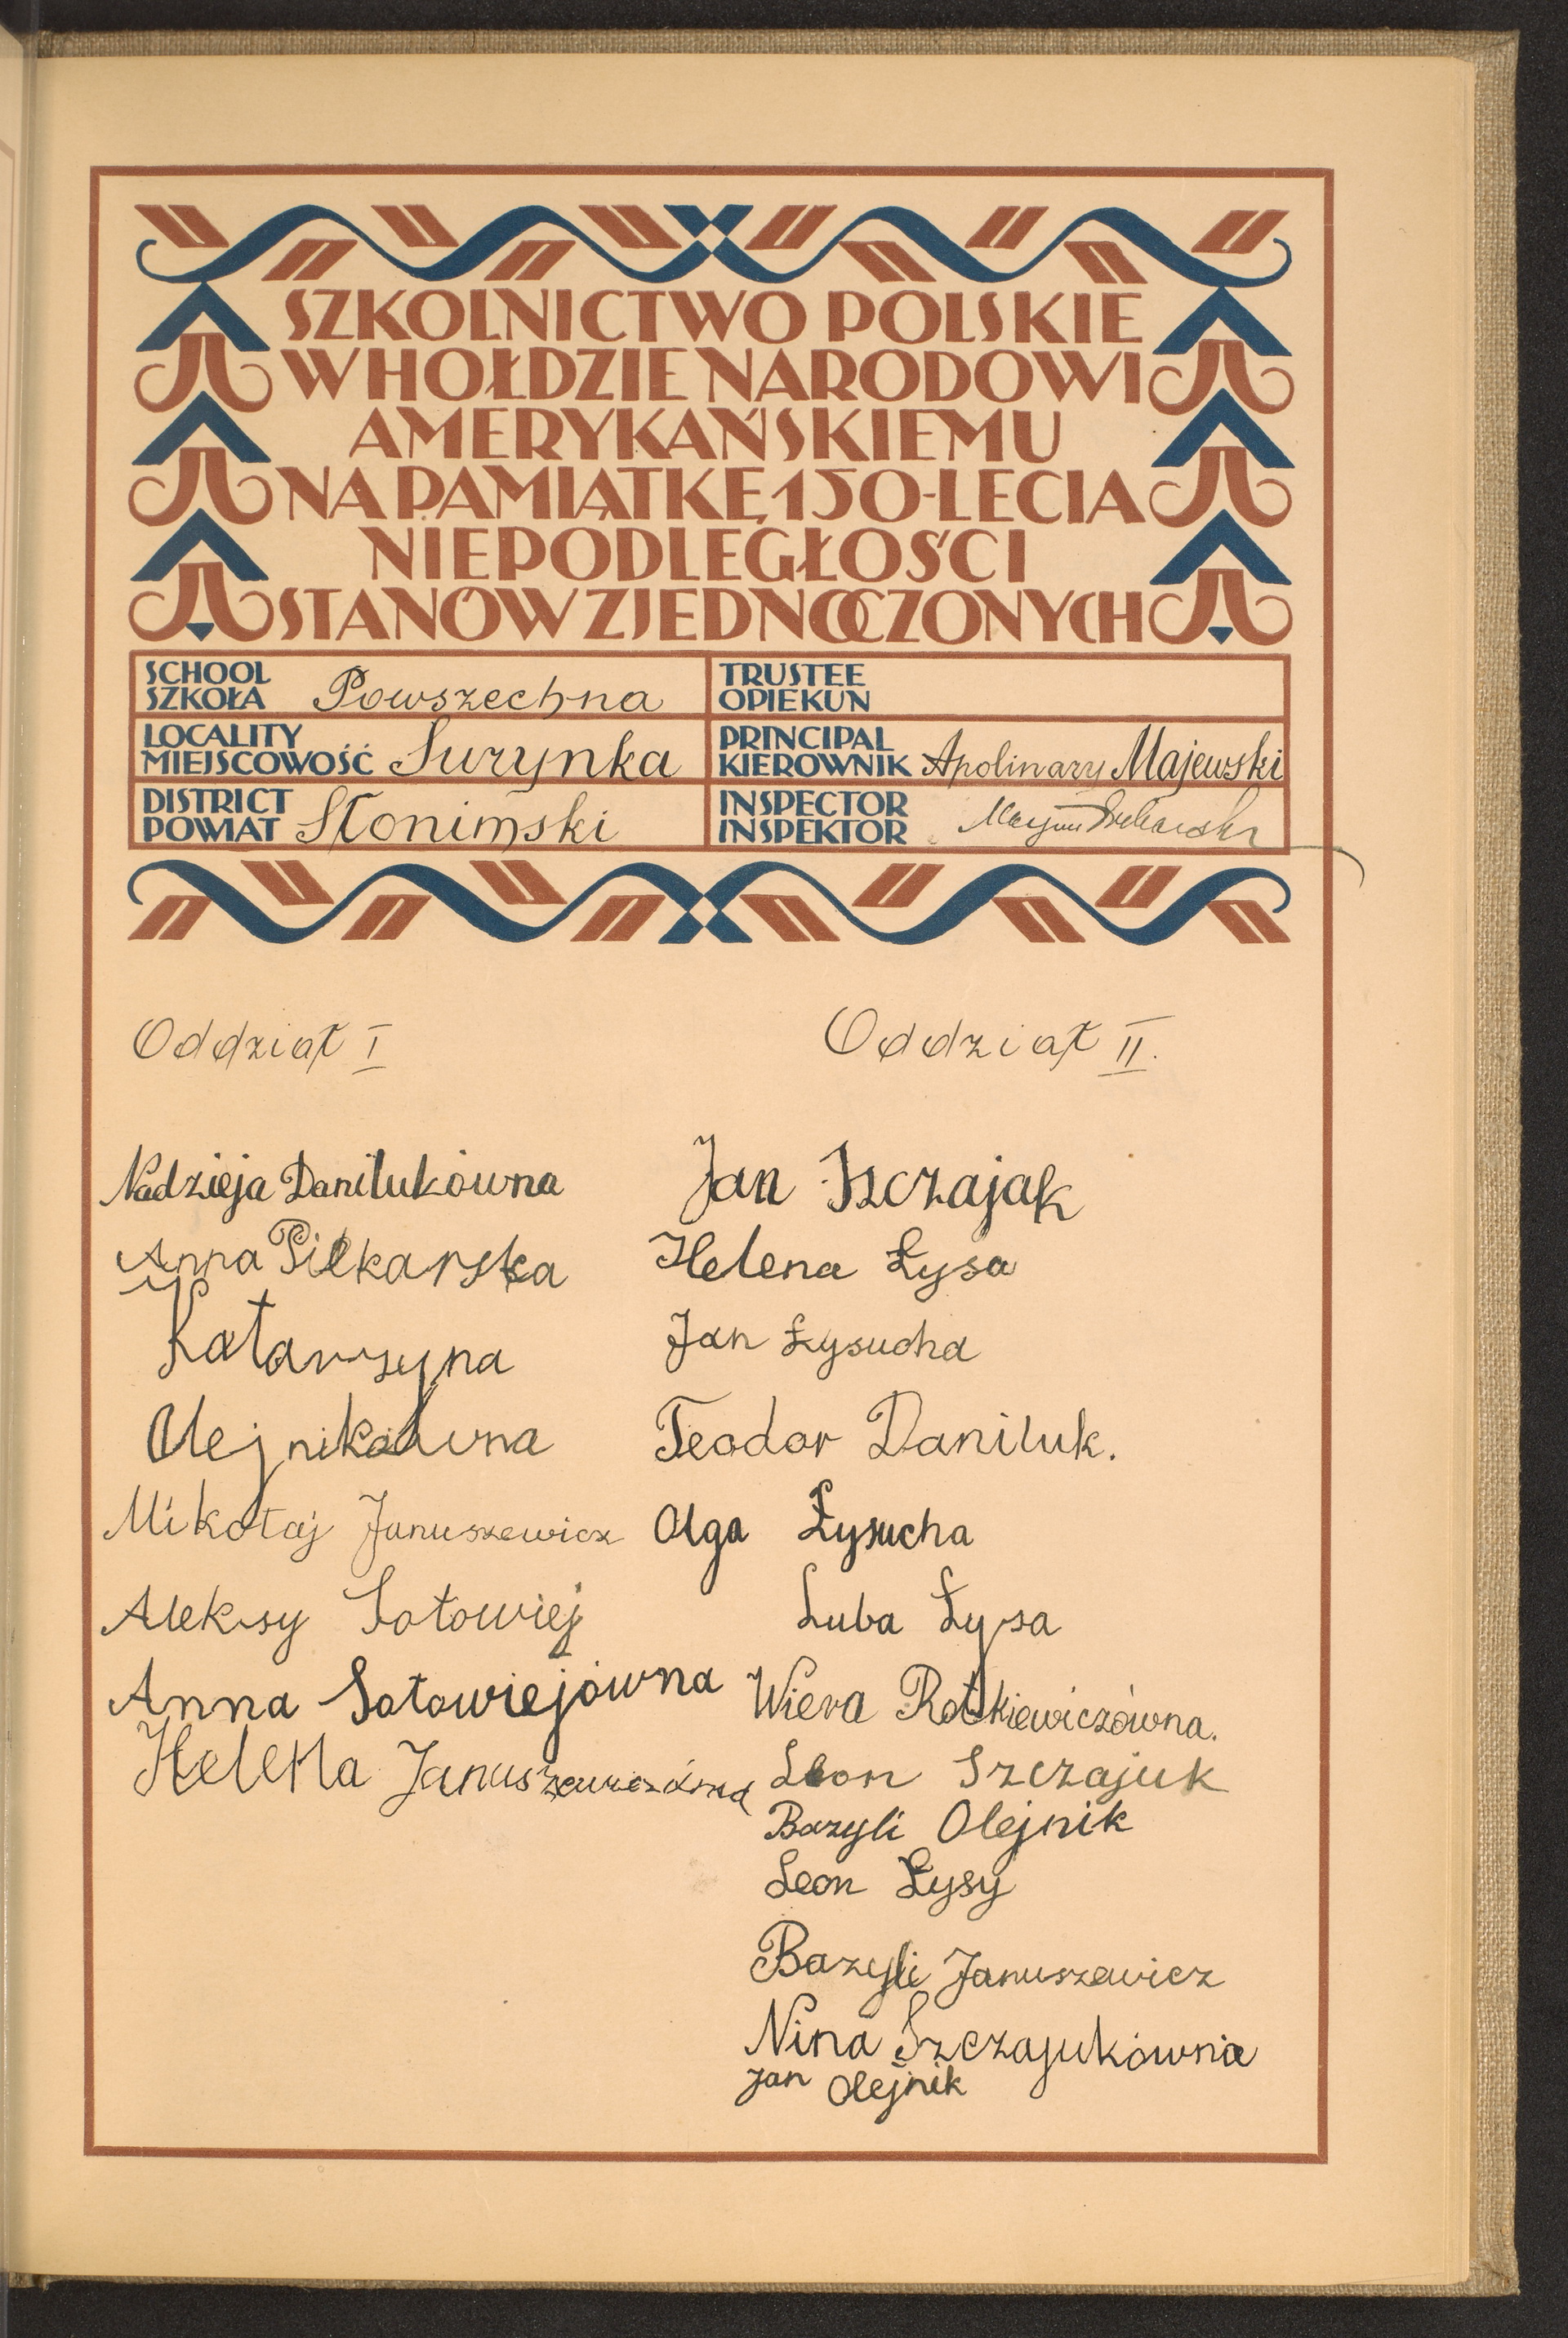 SZKOLNICTWO POLSKIE
W HOŁDZIE NARODOWI
AMERYKAŃSKIEMU
NA PAMIĄTKĘ 150-LECIA
NIEPODLEGŁOŚCI
STANÓW ZJEDNOCZONYCH
SCHOOL
SZKOŁA Powszechna
TRUSTEE
OPIEKUN
LOCALITY
MIEJSCOWOŚĆ Surynka
PRINCIPAL
KIEROWNIK Apolinary Majewski
DISTRICT
POWIAT Słonimski
INSPECTOR
INSPEKTOR
Oddział I
Nadzieja Danilukówna
Anna Piłkarska
Katarzyna
Olejnikówna
Mikołaj Januszewicz
Aleksy Sołowiej
Anna Sołowiejówna
Helena Januszewiczówna
Oddział II.
Jan Szczajak
Helena Łysa
Jan Łysucha
Teodor Daniluk.
Olga Łysucha
Luba Łysa
Wiera Rotkiewiczówna.
Leon Szczajuk
Bazyli Olejnik
Leon Łysy
Bazyli Januszewicz
Nina Szczajukówna
Jan Olejnik